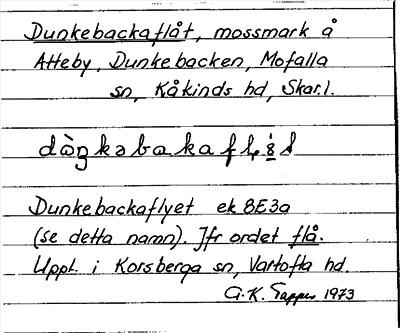 Dunkebackaflåt, mossmark å
Atteby, Dunkebacken, Mofalla
sn, Kåkinds hd, Skar.l.
Dunkebackaflyet ek 8E3a
(se detta namn). Jfr ordet flå.
Uppt. i Korsberga sn, Vartofta hd.
G.K. 1973